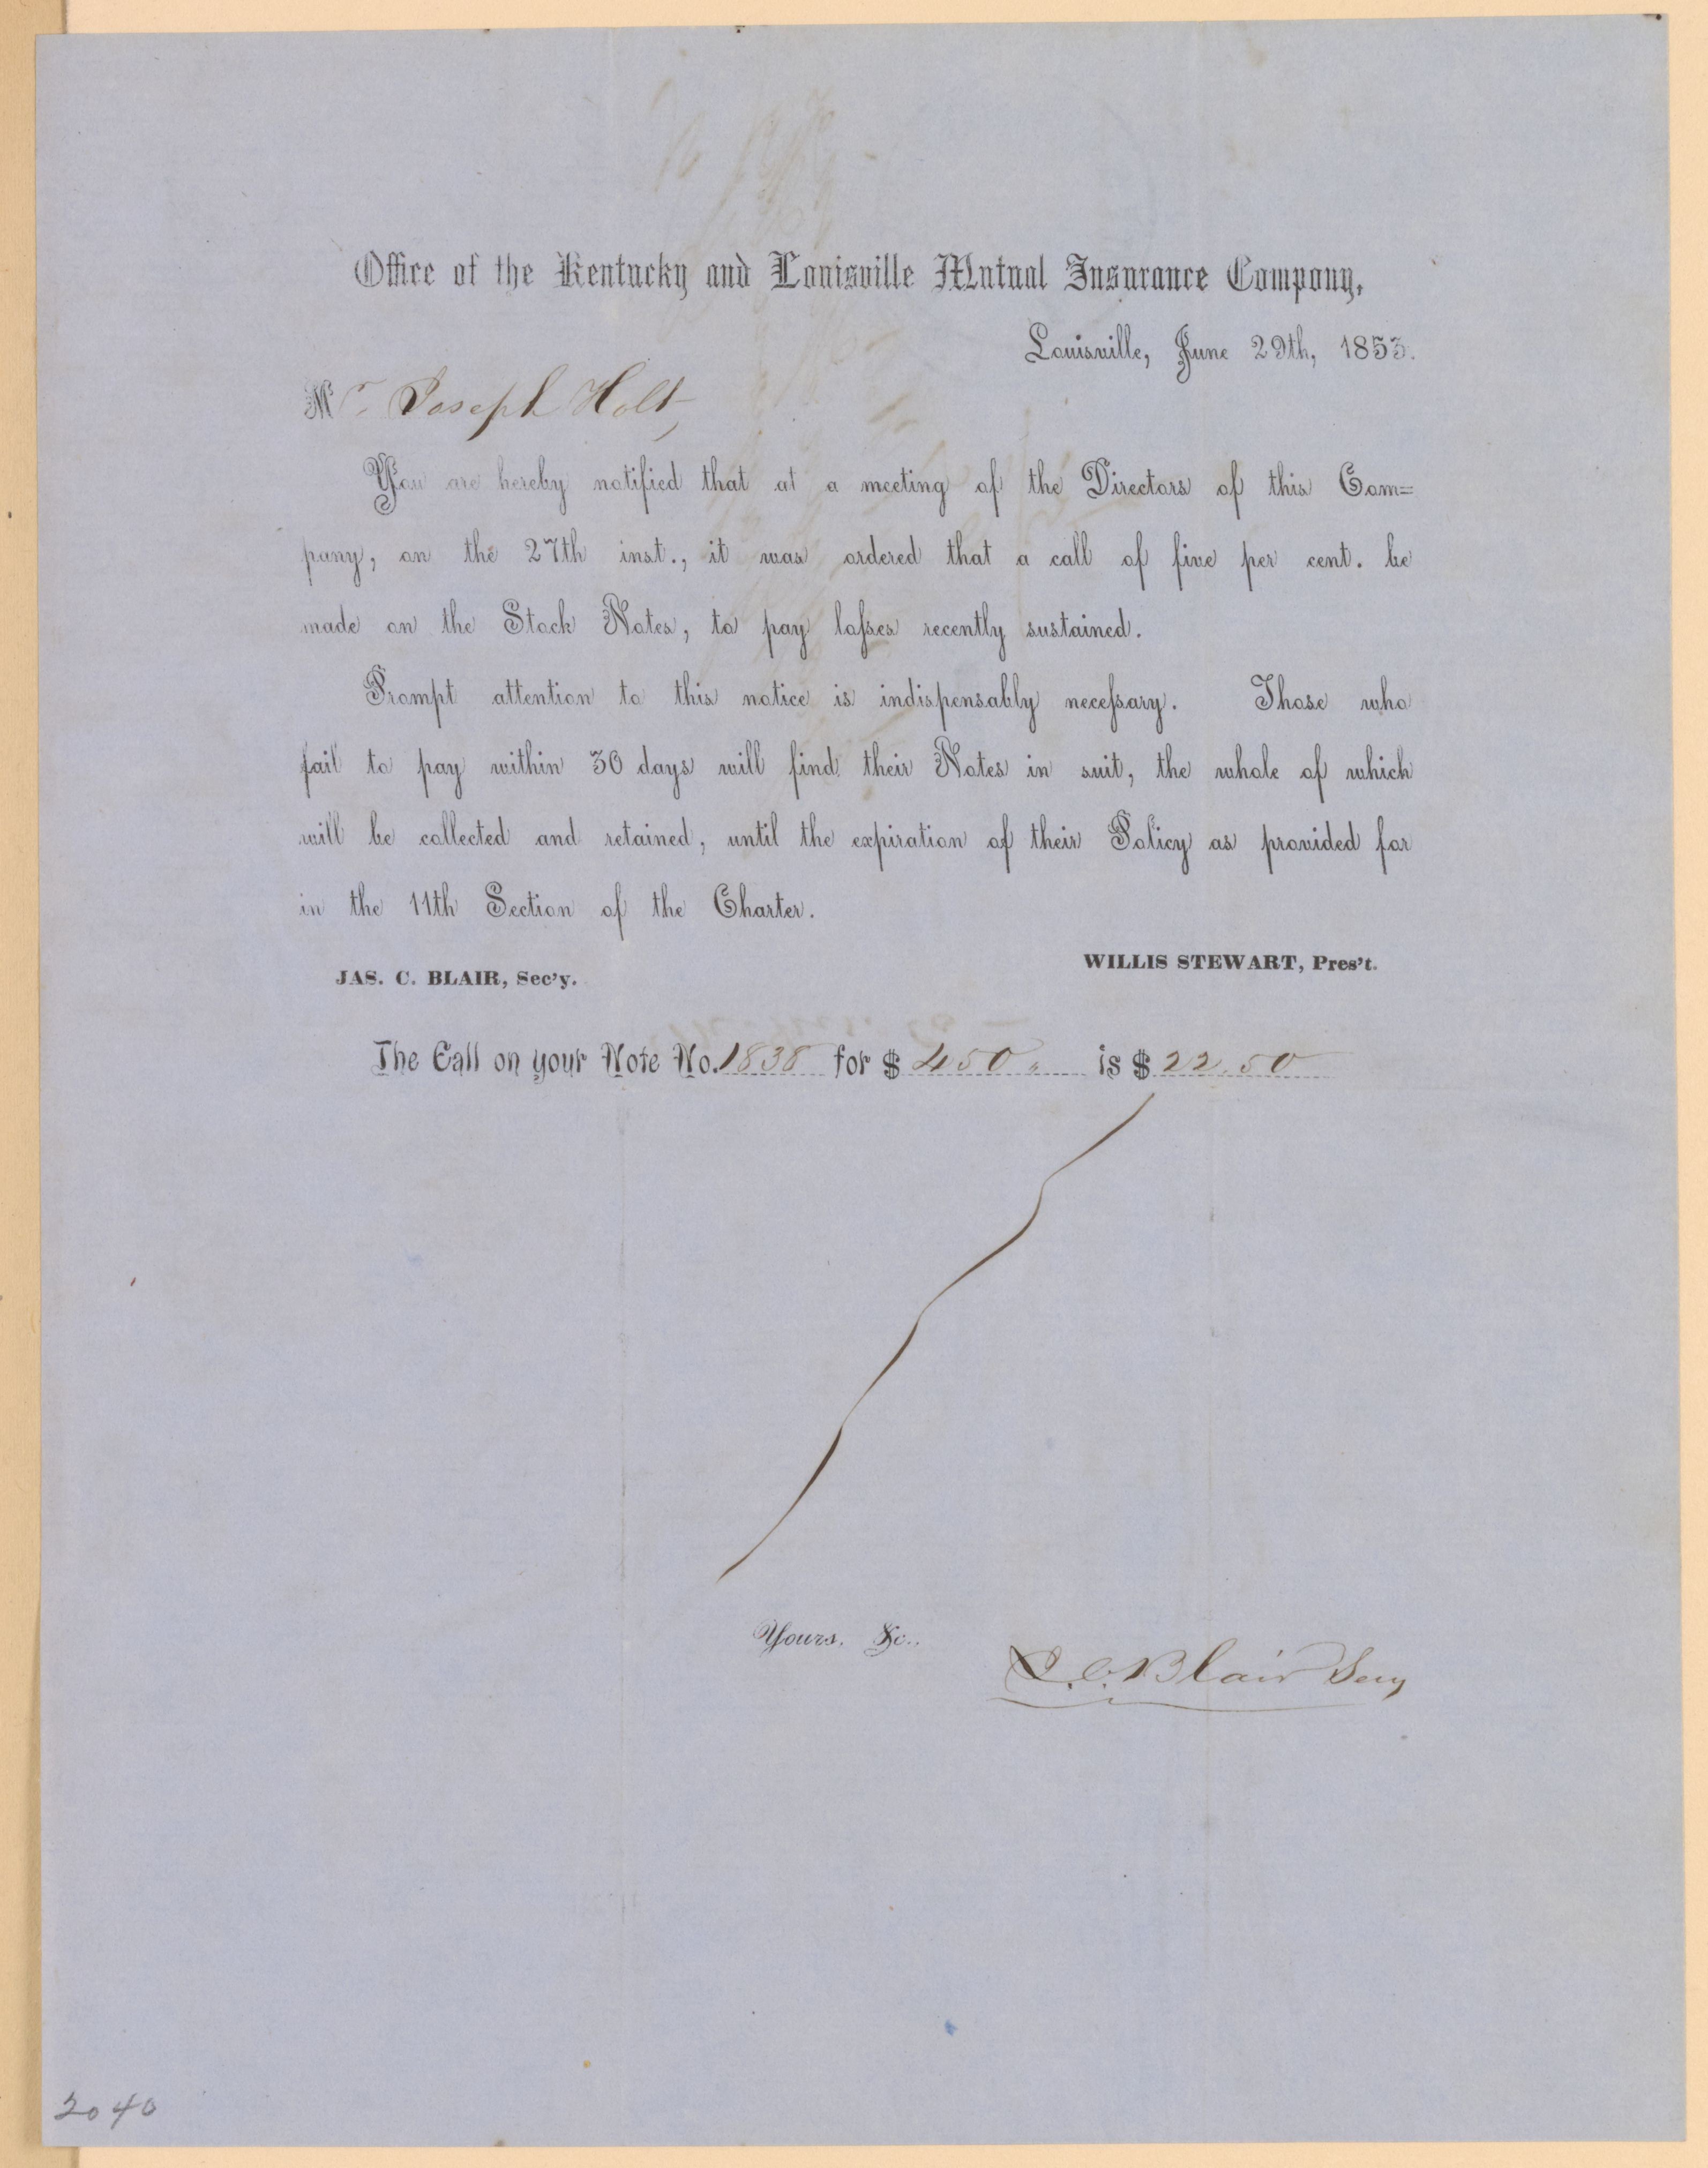 Office of the Kentucky and Louisville Mutual Insurance Company,
Louisville, June 29th, 1853.
Mr. Joseph Holt,
You are hereby notified that at a meeting of the Directors of this Com=
pany, on the 27th inst., it was ordered that a call of five per cent. be
made on the Stock Notes, to pay loſses recently sustained.
Prompt attention to this notice is indispensably neceſsary. Those who
fail to pay within 30 days will find their Notes in suit, the whole of which
will be collected and retained, until the expiration of their Policy as provided for
in the 11th Section of the Charter.
WILLIS STEWART, Pres't.
JAS. C. BLAIR, Sec'y.
The Call on your Note No. 1838 for $ 450 " is $ 22.50
Yours, &c.,
J. C. Blair Secy
2040